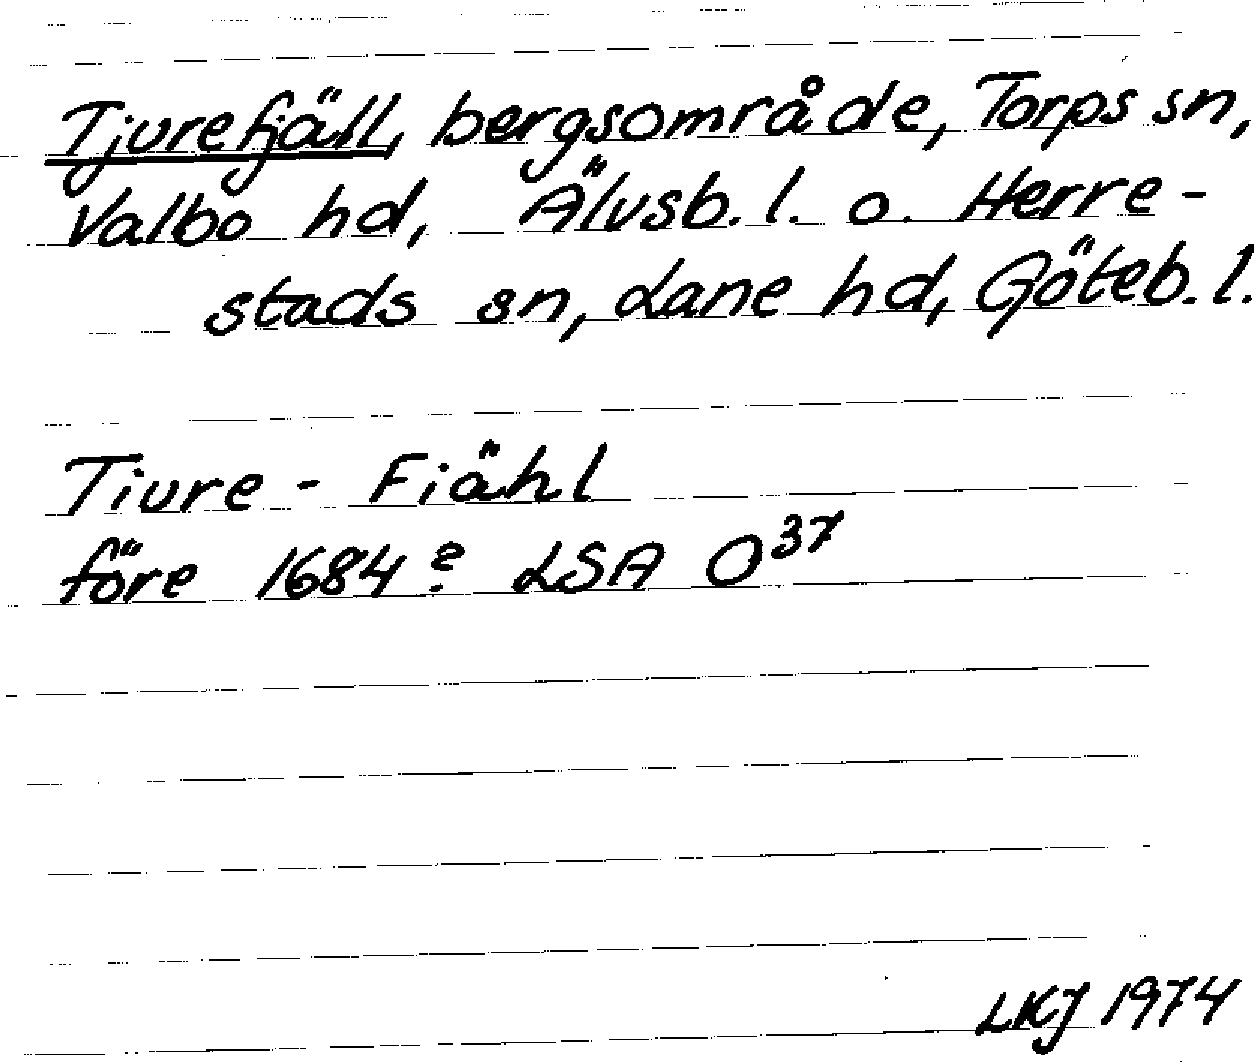 Tjurefjäll, bergsområde, Torps sn,
Valbo hd, Älvsb. l. o. Herre-
stads sn, Lane hd, Göteb. l.
Tiure - Fiähl
före 1684? LSA O³⁷
LKJ 1974